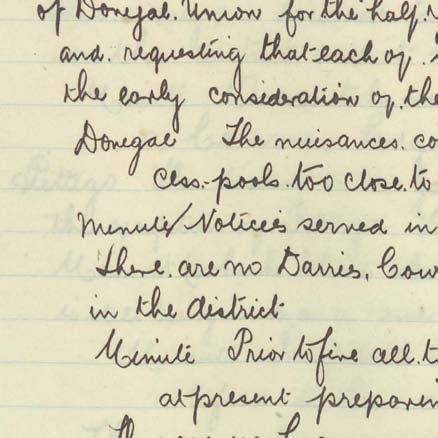 of Donegal Union for the half
and requesting that each of
the early consideration of the
Donegal The nuisances co
cess-pools too close to
Minute/ Notices served in
There are no Darries, Cow
in the district
Minute Prior to five all t
at present preparen